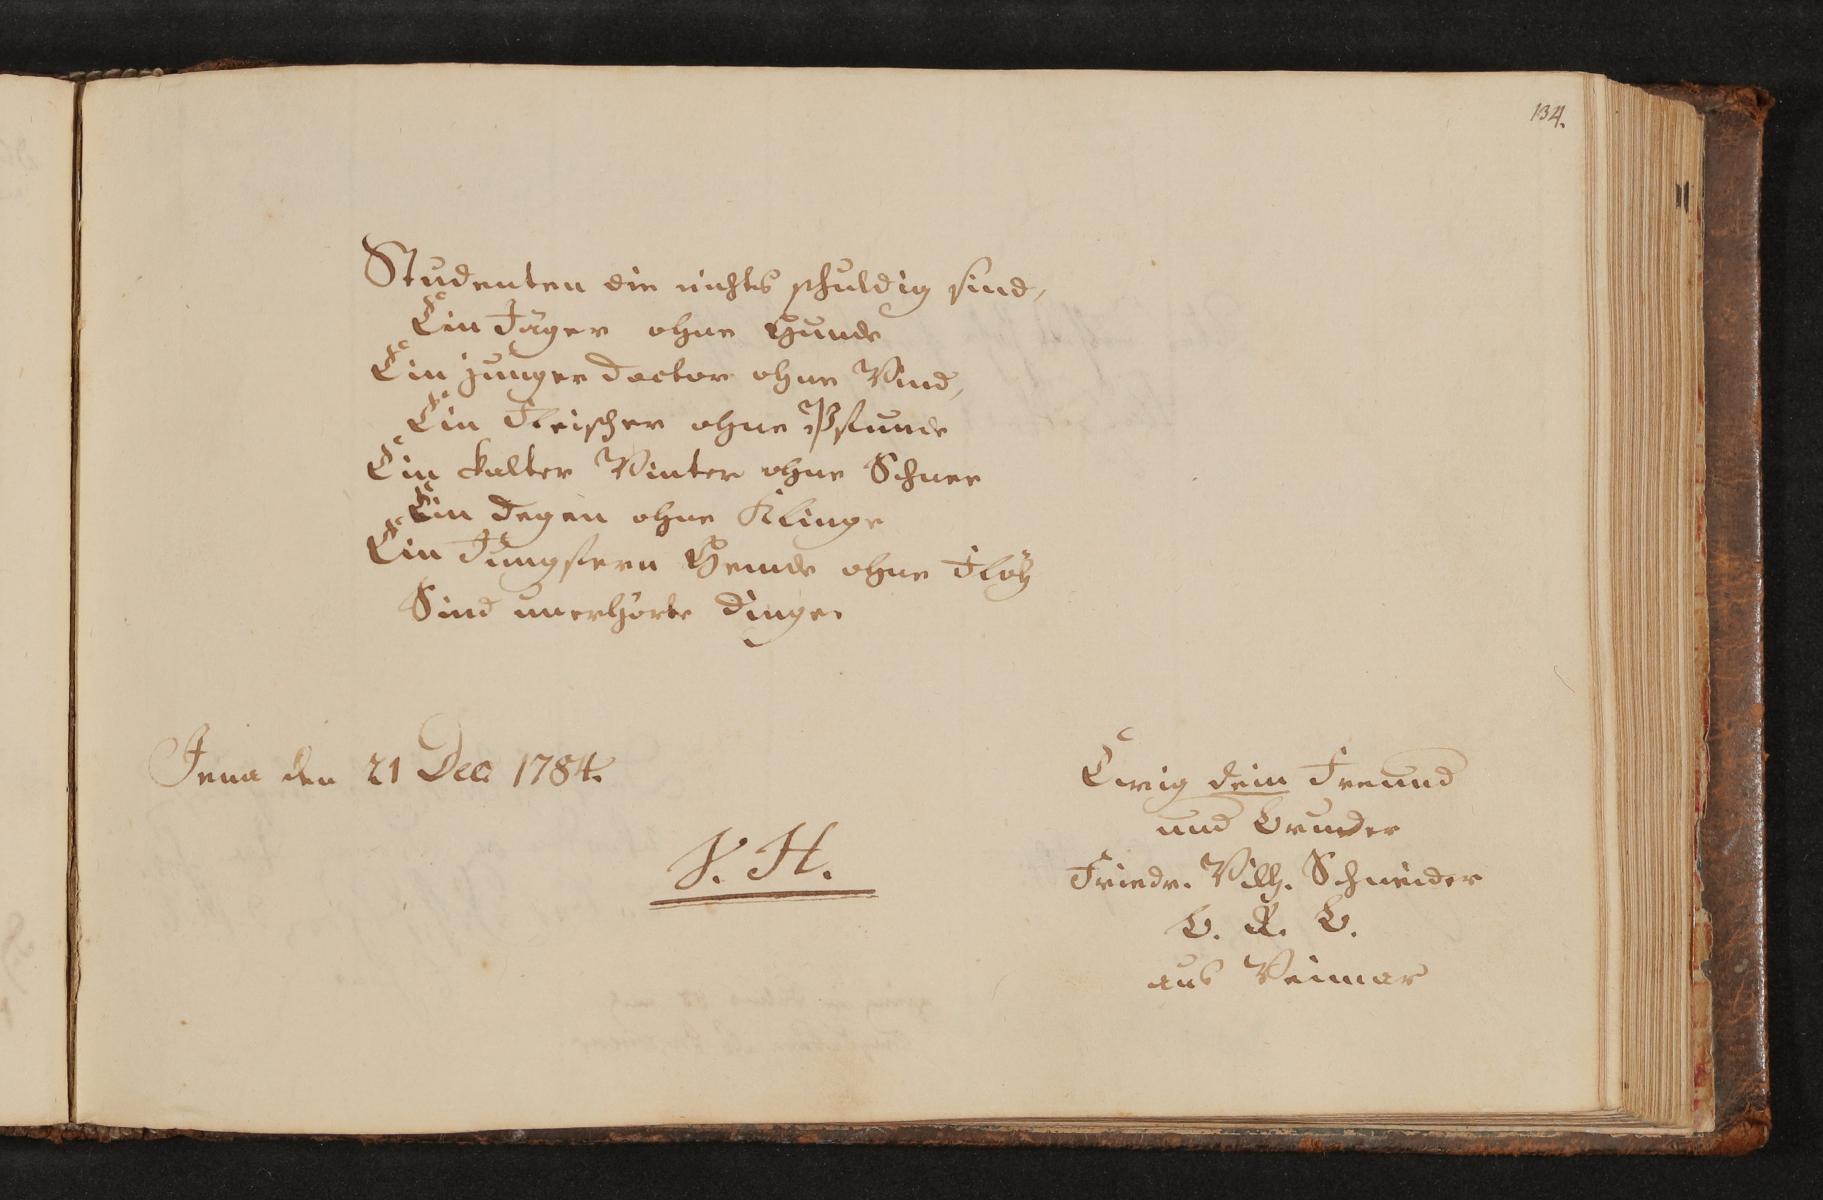 134.
Studenten die nichts schuldig sind,
Ein Jäger ohne Hunde
Ein junger Doctor ohne Wind,
Ein Fleischer ohne Pfunde
Ein kalter Winter ohne Schnee
Ein Degen ohne Klinge
Ein Jungfern Hemde ohne Flöh
Sind unerhörte Dinge.
Jena den 21 Dec 1784.
V. H.
Ewig dein Freund
und Bruder
Friedr. Wilh. Schneider
B. R. B.
aus Weimar